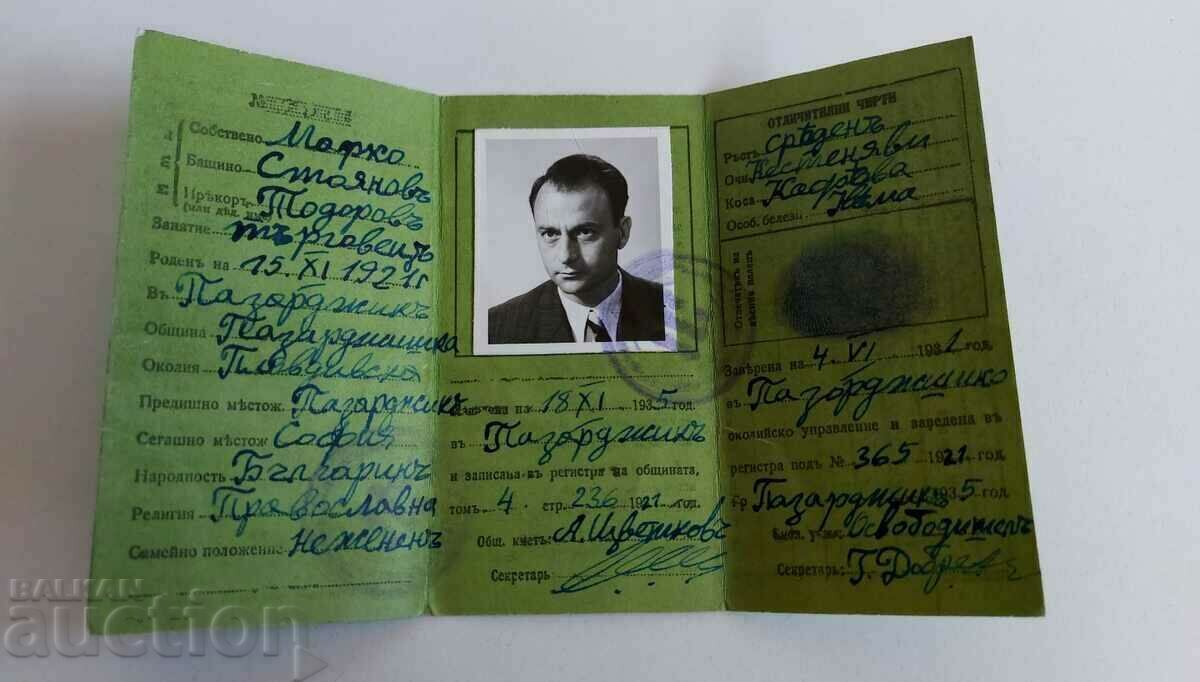 Собствено Марко
Бащино Стояновъ
Прѣкоръ Тодоровъ
(или дѣд. име)
Име
Занятие търговецъ
Роденъ на 15. XI 1921 г
Въ Пазарджикъ
Община Пазарджишка
Околия Пловдивска
Предишно мѣстож. Пазарджикъ
Сегашно мѣстож. София
Народность Българинъ
Религия Православна
Семейно положение нежененъ
на 18 XI 1935 год.
въ Пазарджикъ
и записана въ регистра на общината,
томъ 4. стр. 236 1921 год.
Общ. кметъ: А. Цвѣтковъ
Секретарь
ОТЛИЧИТЕЛНИ ЧЕРТИ
Ръстъ срѣденъ
Очи Кестеняви
Коса Кафява
Особ. белези Няма
Отпечатъкъ на
Завѣрена на 4. VI 1931 год.
въ Пазарджишко
околийско управление и заведена въ
регистра подъ № 365 1921 год.
гр Пазарджишко 1935 год.
Освободителъ
Секретарь: Г. Добрев
BALKAN
auction